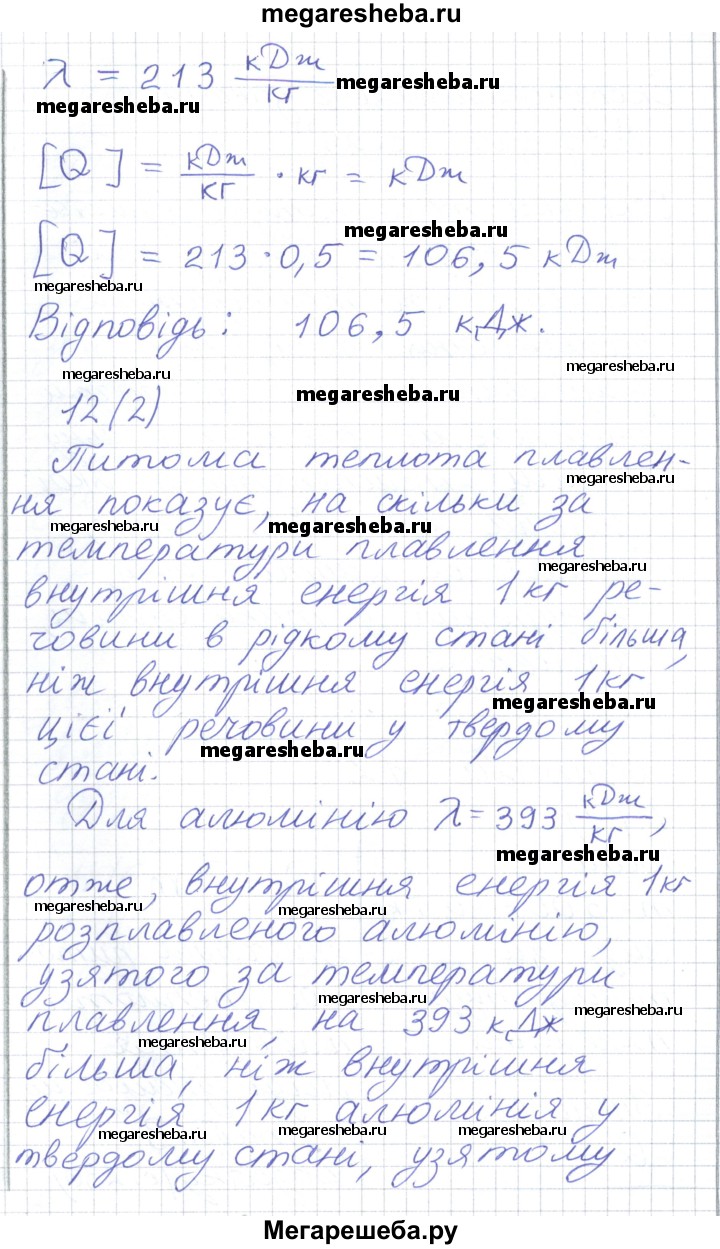 megaresheba.ru
λ = 213 кДж/кг
megaresheba.ru
megaresheba.ru
[Q] = кДж/кг · кг = кДж
megaresheba.ru
[Q] = 213 · 0,5 = 106,5 кДж
megaresheba.ru
Відповідь: 106,5 кДж.
megaresheba.ru
megaresheba.ru
megaresheba.ru
12(2)
Питома теплота плавлен-
megaresheba.ru
ня показує, на скільки за
megaresheba.ru
megaresheba.ru
температури плавлення
megaresheba.ru
внутрішня енергія 1 кг ре-
човини в рідкому стані більша,
ніж внутрішня енергія 1 кг
megaresheba.ru
цієї речовини у твердому
megaresheba.ru
стані.
Для алюмінію λ = 393 кДж/кг,
megaresheba.ru
отже, внутрішня енергія 1 кг
megaresheba.ru
megaresheba.ru
розплавленого алюмінію,
узятого за температури
megaresheba.ru
megaresheba.ru
плавлення, на 393 кДж
megaresheba.ru
більша, ніж внутрішня
енергія 1 кг алюмінія у
megaresheba.ru
megaresheba.ru
megaresheba.ru
твердому стані, узятому
Мегарешеба.ру